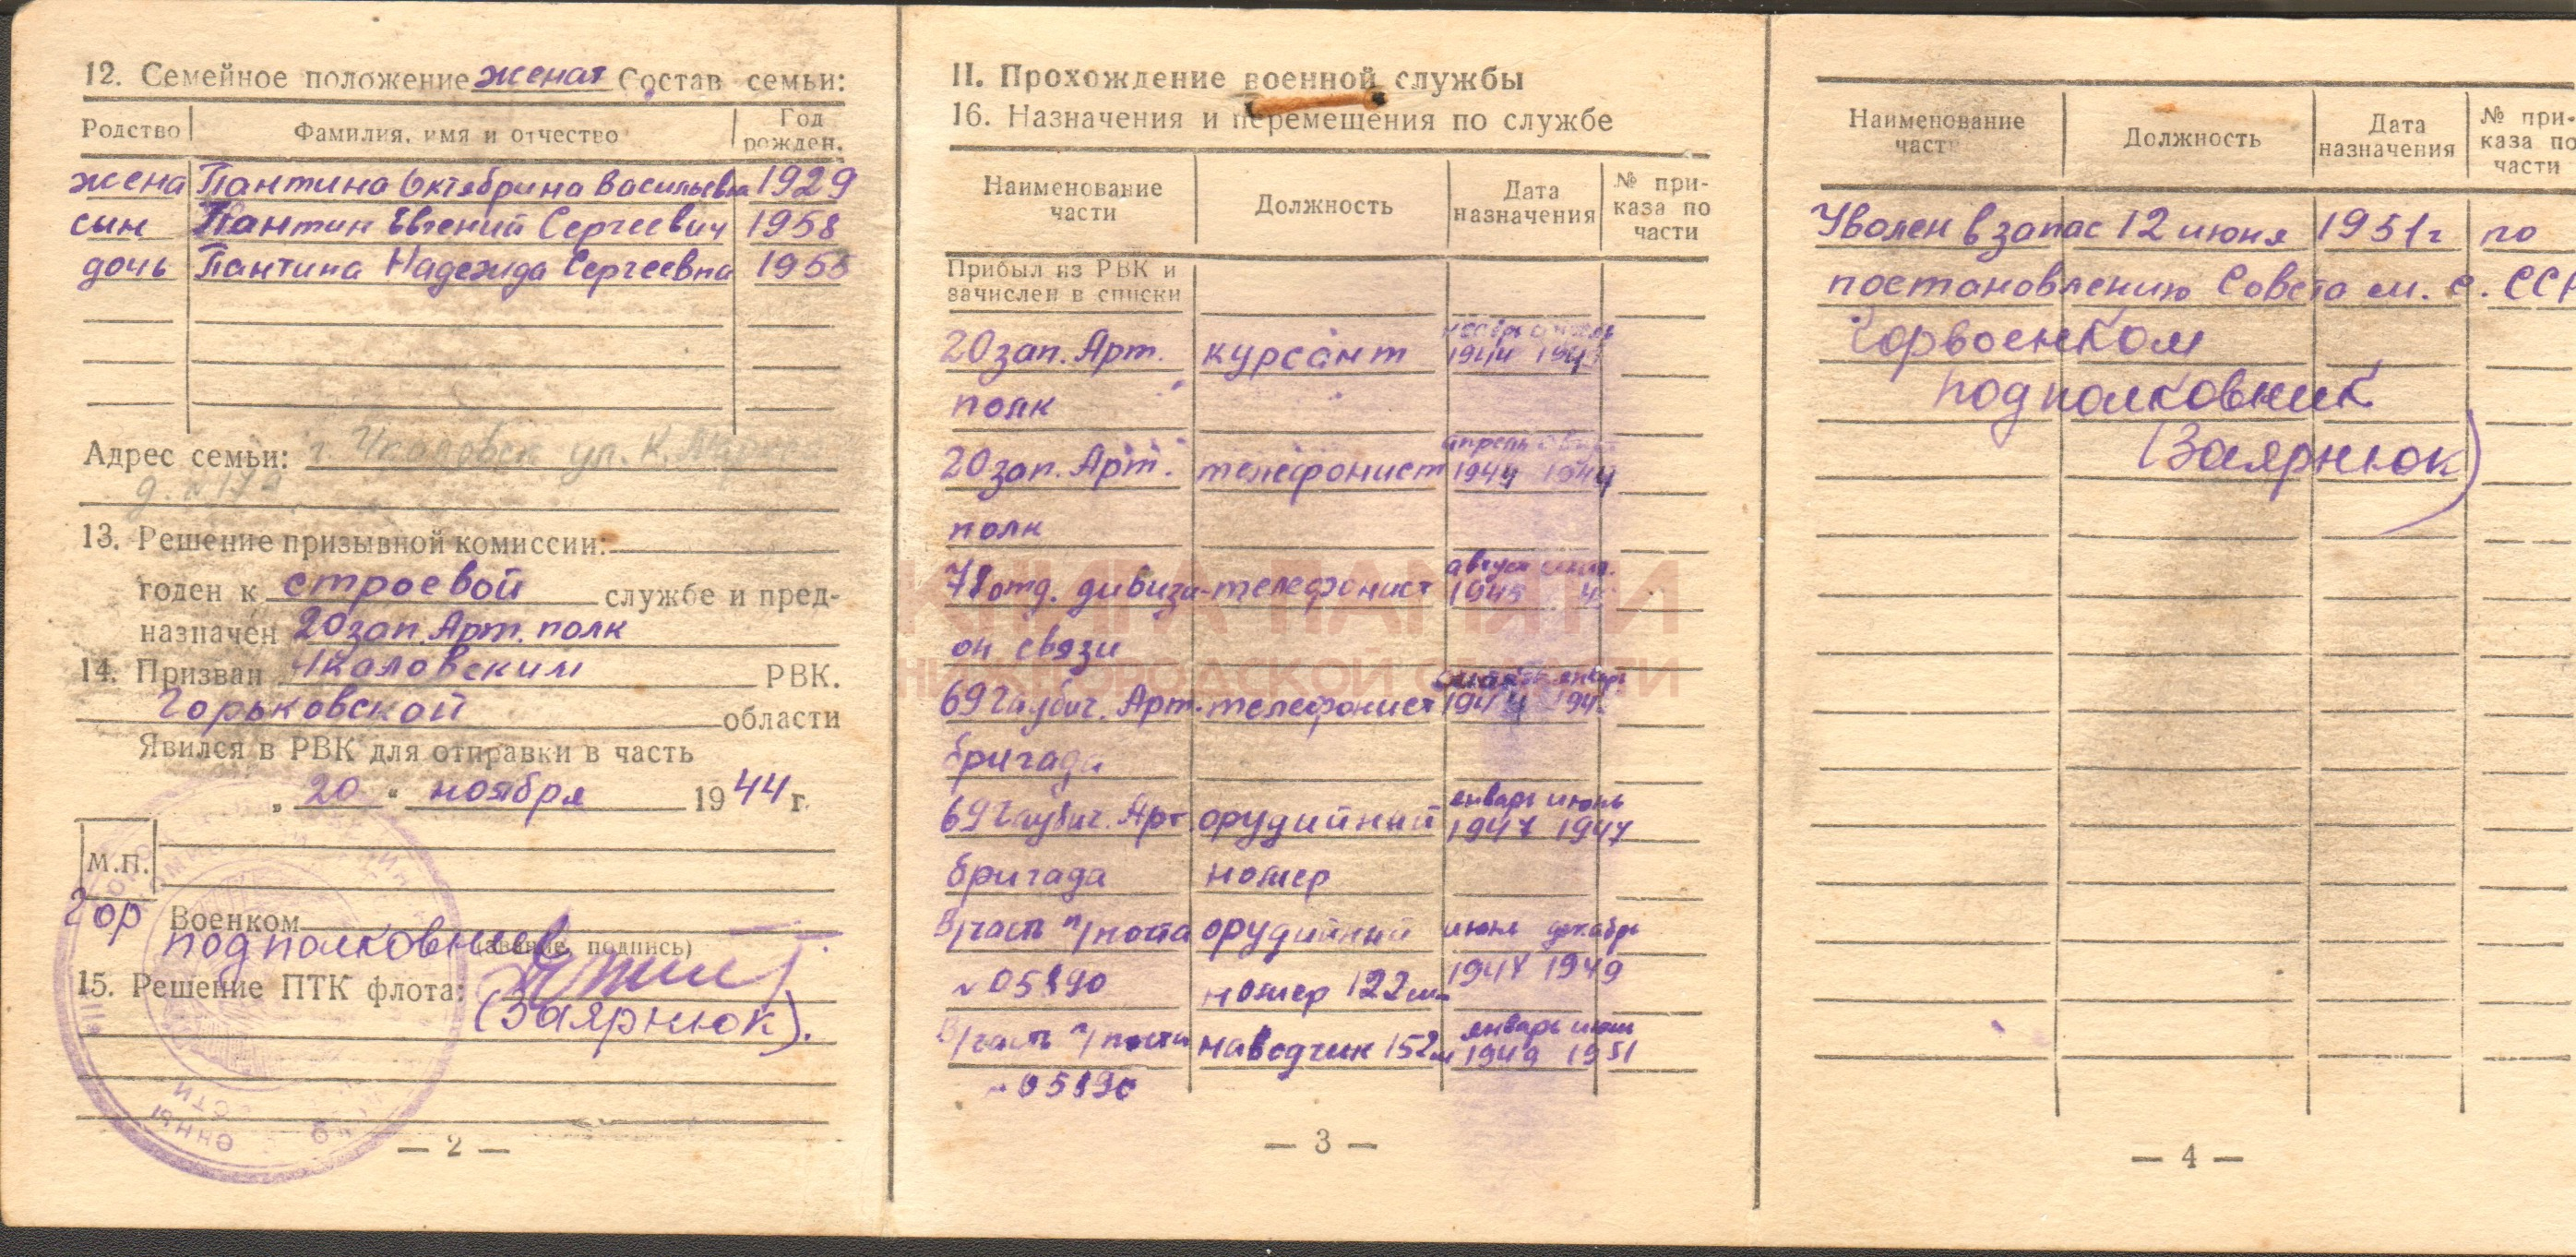 12. Семейное положение женат Состав семьи:
Родство Фамилия, имя и отчество Год рожден.
жена Пантина Октябрина Васильевна 1929
сын Пантин Евгений Сергеевич 1958
дочь Пантина Надежда Сергеевна 1955
Адрес семьи: г. Чкаловск ул. К. Маркса
д. №
13. Решение призывной комиссии:
годен к строевой службе и пред-
назначен 20 зап. Арт. полк
14. Призван Чкаловским РВК.
Горьковской области
Явился в РВК для отправки в часть
„ 20 “ ноября 1944 г.
М.П.
Гор Военком
подполковник (звание, подпись)
15. Решение ПТК флота:
(Заярнюк).
— 2 —
II. Прохождение военной службы
16. Назначения и перемещения по службе
Наименование части Должность Дата назначения № при-каза по части
Прибыл из РВК и
зачислен в списки
20 зап. Арт. курсант ноябрь 1944
полк
20 зап. Арт. телефонист апрель 1944 1944
полк
78 отд. дивизи- телефонист август 1945
он связи
69 Гаубич. Арт. телефонист 1944 январь
бригада
69 Гаубич. Арт. орудийный январь июнь 1947 1947
бригада номер
В/часть п/почта орудийный июнь декабрь
№ 05890 номер 122 мм 1947 1949
В/часть п/почта наводчик 152 м январь июнь 1949 1951
№ 05890
— 3 —
КНИГА ПАМЯТИ
НИЖЕГОРОДСКОЙ ОБЛАСТИ
Наименование части Должность Дата назначения № при-каза по части
Уволен в запас 12 июня 1951 г по
постановлению Совета м. с. ССР
Горвоенком
подполковник
(Заярнюк)
— 4 —